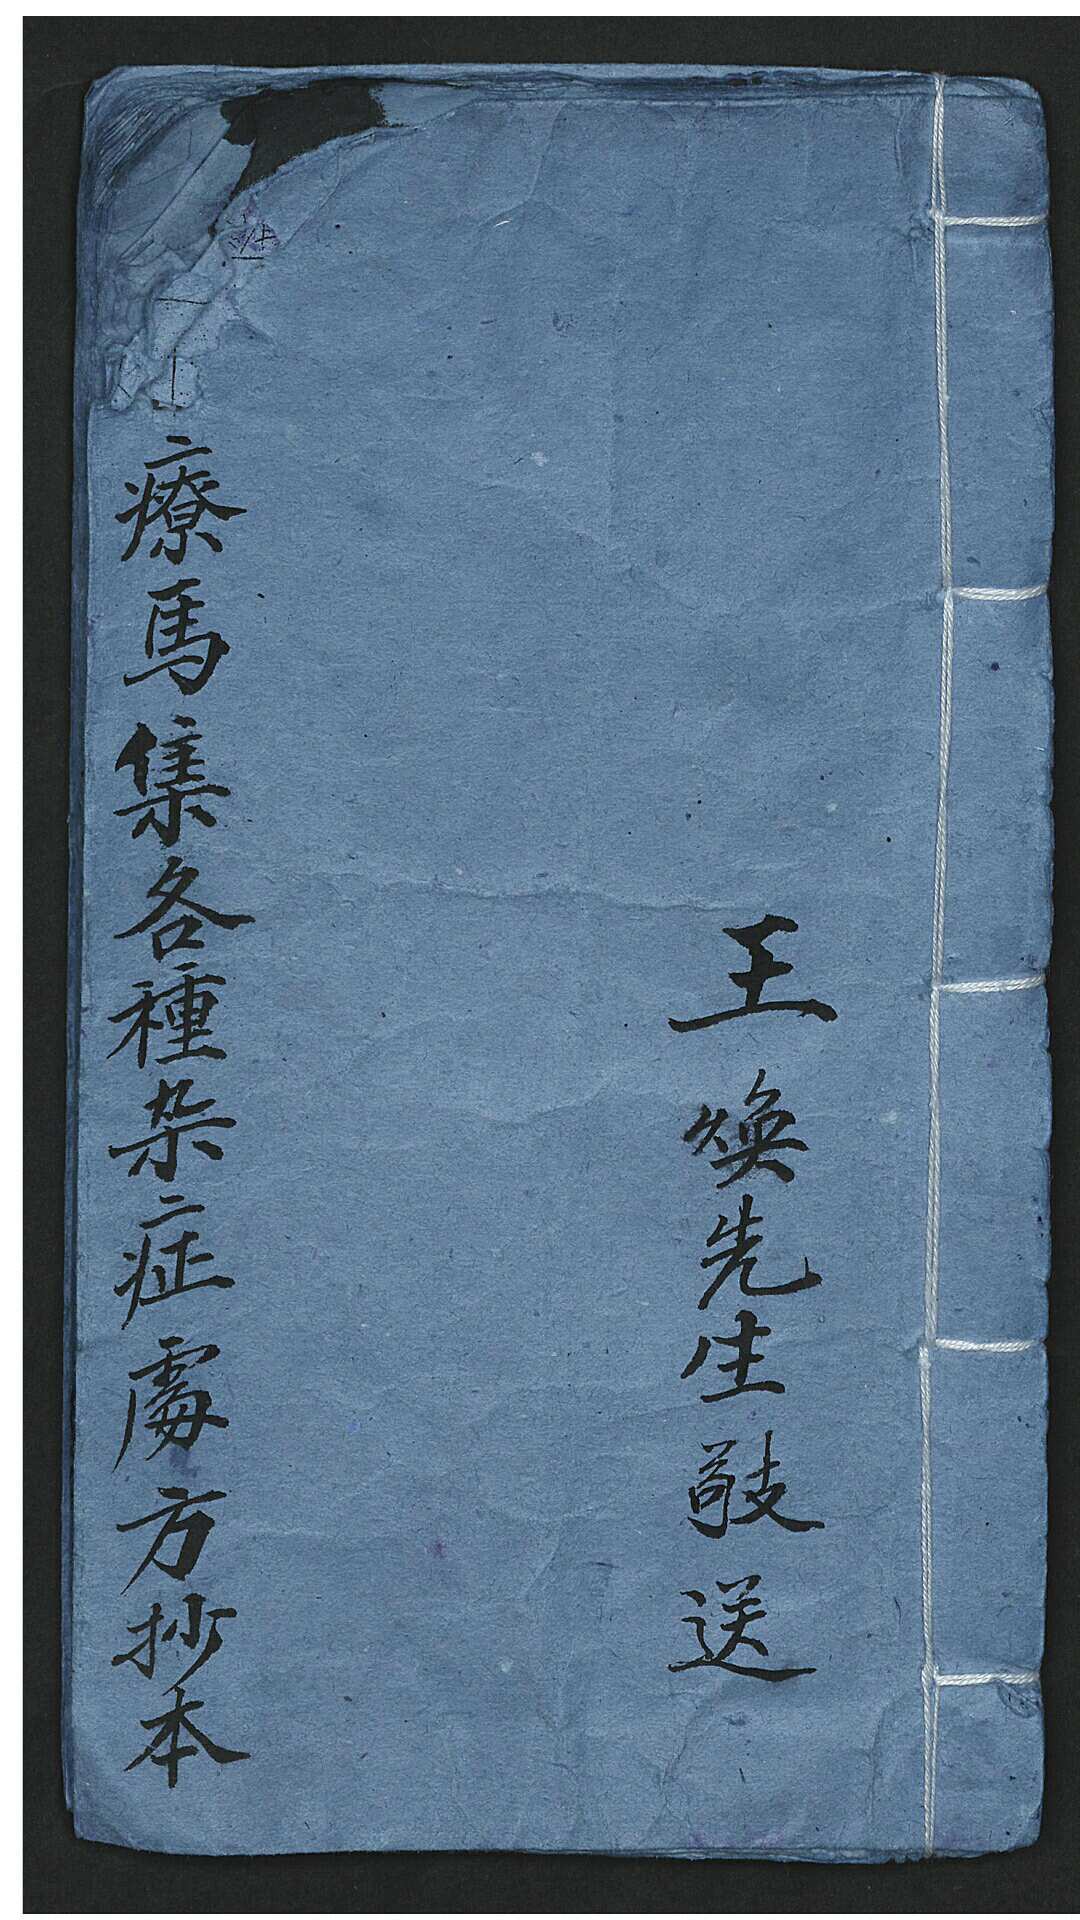 王焕先生敬送
療馬集各種杂症處方抄本